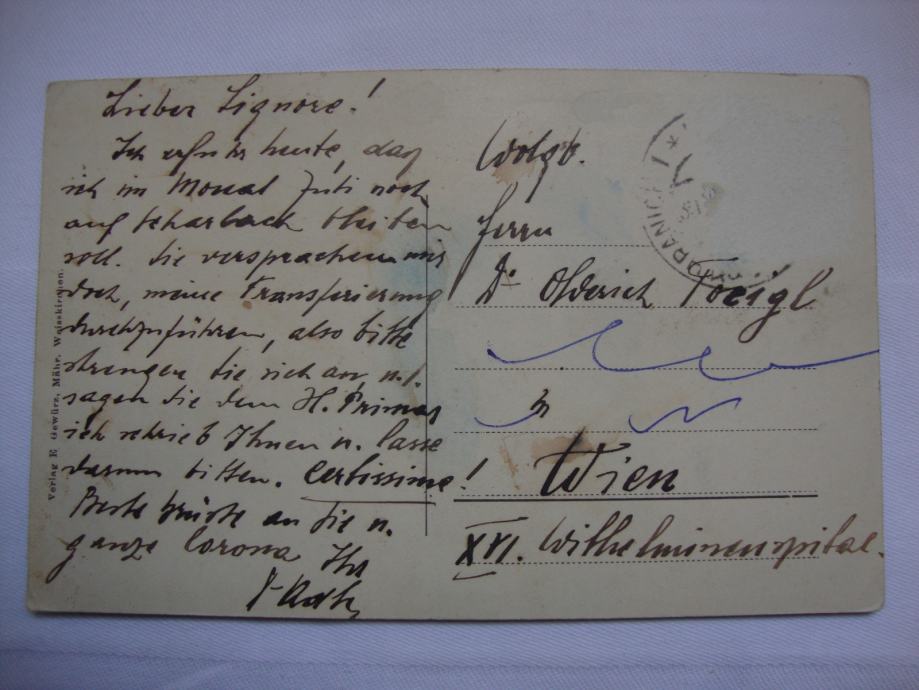 Lieber Signore!
Ich erfuhr heute, daß
ich im Monat Juli noch
auf bleiben
soll. Sie versprachen mir
doch, meine Transferierung
durchzuführen, also bitte
strengen Sie sich an u.
sagen Sie dem H. Primar
ich schrieb Ihnen u. lasse
darum bitten. Certissime!
Beste Grüße an Sie u.
ganze Corona Ihr
Wolgb.
Herrn
Dr Olderich
in
Wien
XVI. Wilhelminenspital.
Verlag E Gewürz, Mähr. Weisskirchen.